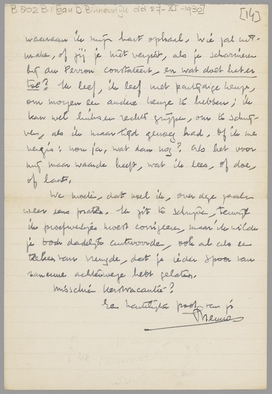 B 802 B I aan D. Binnendijk dd 27-XI-1930
[14]
waaraan ik mijn hart ophaal. Wie zal uit-
maken, of jij je niet vergist, als je scharnieren
bij du Perron constateert, en wat doet het er
toe? Ik leef, ik leef met partijdige keuze,
om morgen een andere keuze te hebben; ik
kan niet links en rechts grijpen, om te schrij-
ven, als ik maar tijd genoeg had. Of ik me
vergis: nou ja, wat dan nog? Als het voor
mij maar waarde heeft, wat ik lees, of doe,
of haat.
We moeten, dat voel ik, over deze zaken
weer eens praten. Ik zit te schrijven, terwijl
ik proefwerkjes moest corrigeren, maar ik wilde
je toch dadelijk antwoorden, ook als een
teeken van vreugde, dat je ieder spoor van
rancune achterwege hebt gelaten.
Misschien Kerstvacantie?
Een hartelijke poot van je
Menno